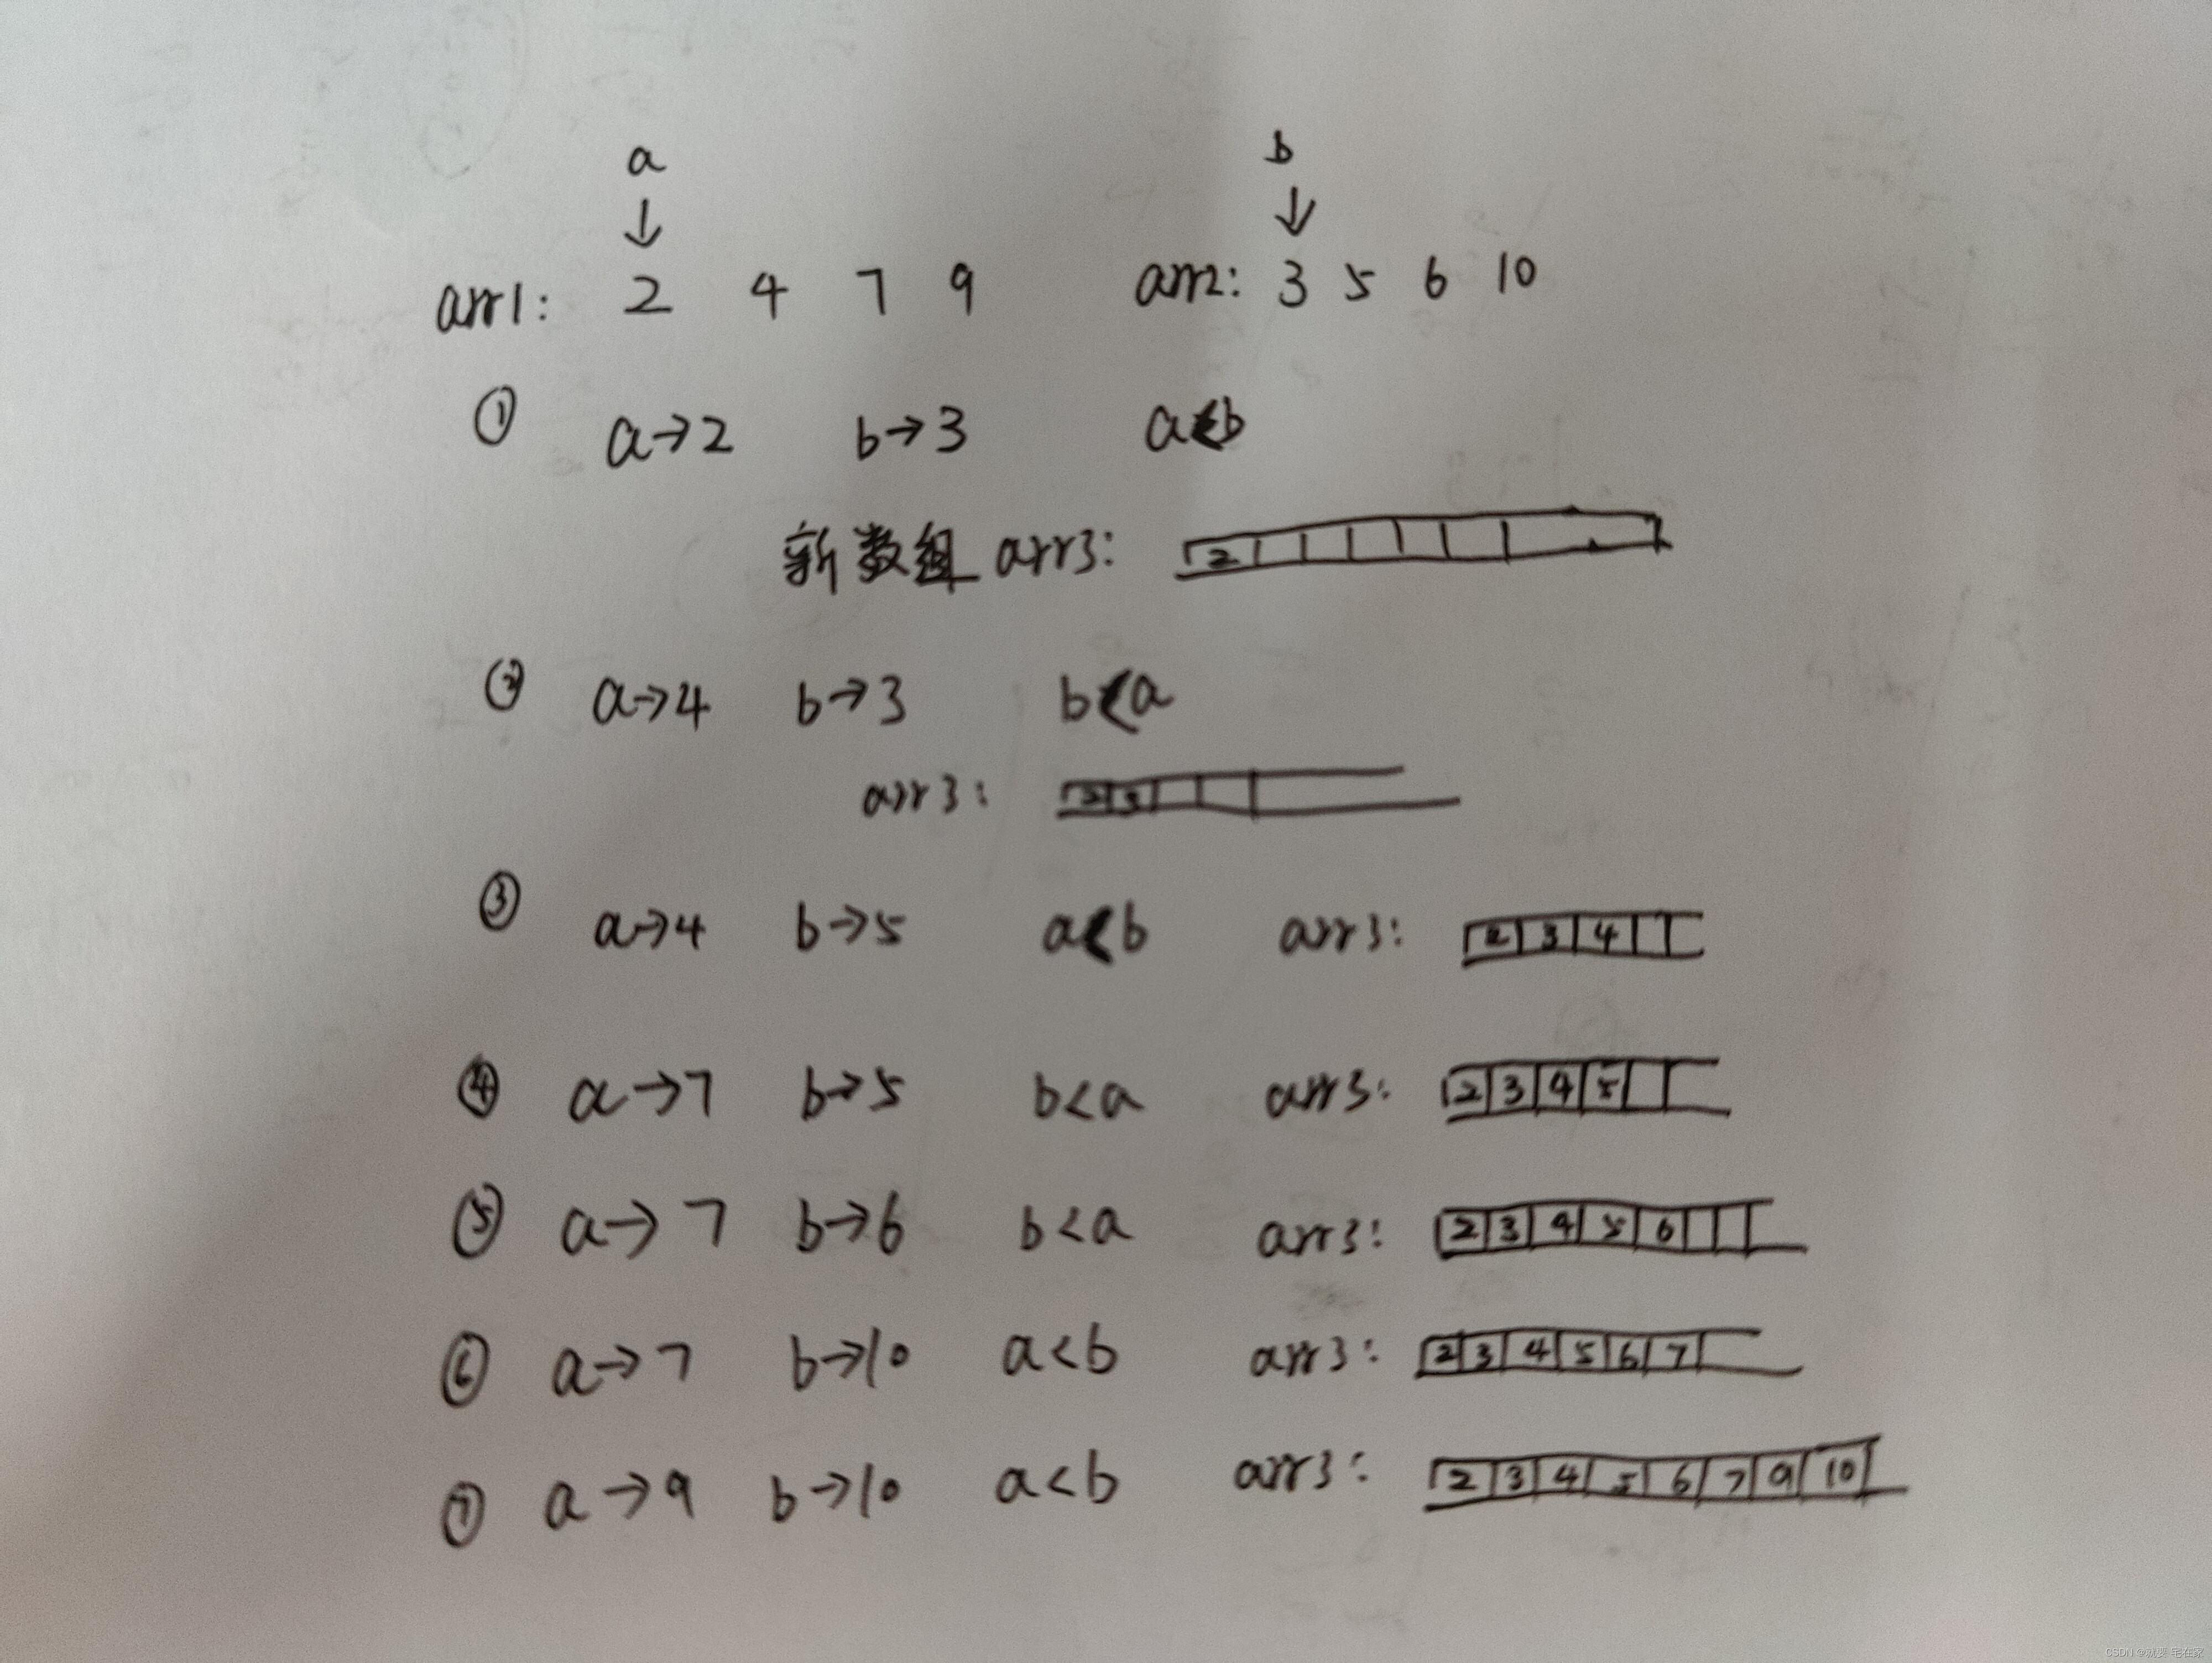 a b
↓ ↓
arr1: 2 4 7 9 arr2: 3 5 6 10
① a→2 b→3 a<b
新数组 arr3: 2
② a→4 b→3 b<a
arr3: 2 3
③ a→4 b→5 a<b arr3: 2 3 4
④ a→7 b→5 b<a arr3: 2 3 4 5
⑤ a→7 b→6 b<a arr3: 2 3 4 5 6
⑥ a→7 b→10 a<b arr3: 2 3 4 5 6 7
⑦ a→9 b→10 a<b arr3: 2 3 4 5 6 7 9 10
CSDN @就要 宅在家